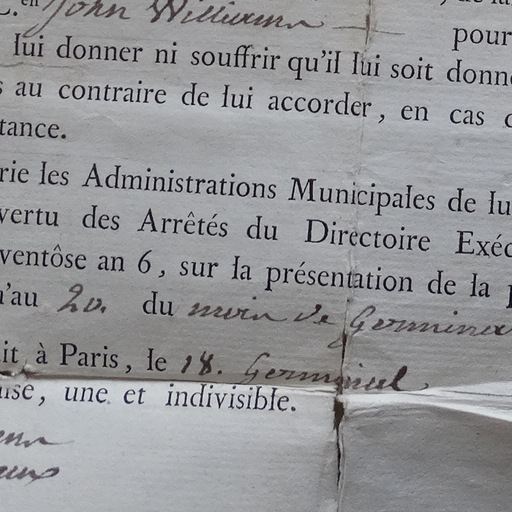 C.en John Williams pour
lui donner ni souffrir qu'il lui soit donn
s au contraire de lui accorder, en cas
tance.
rie les Administrations Municipales de lu
vertu des Arrêtés du Directoire Exéc
ventôse an 6, sur la présentation de la
u'au 20. du mois de Germinal
it à Paris, le 18. Germinal
ise, une et indivisible.